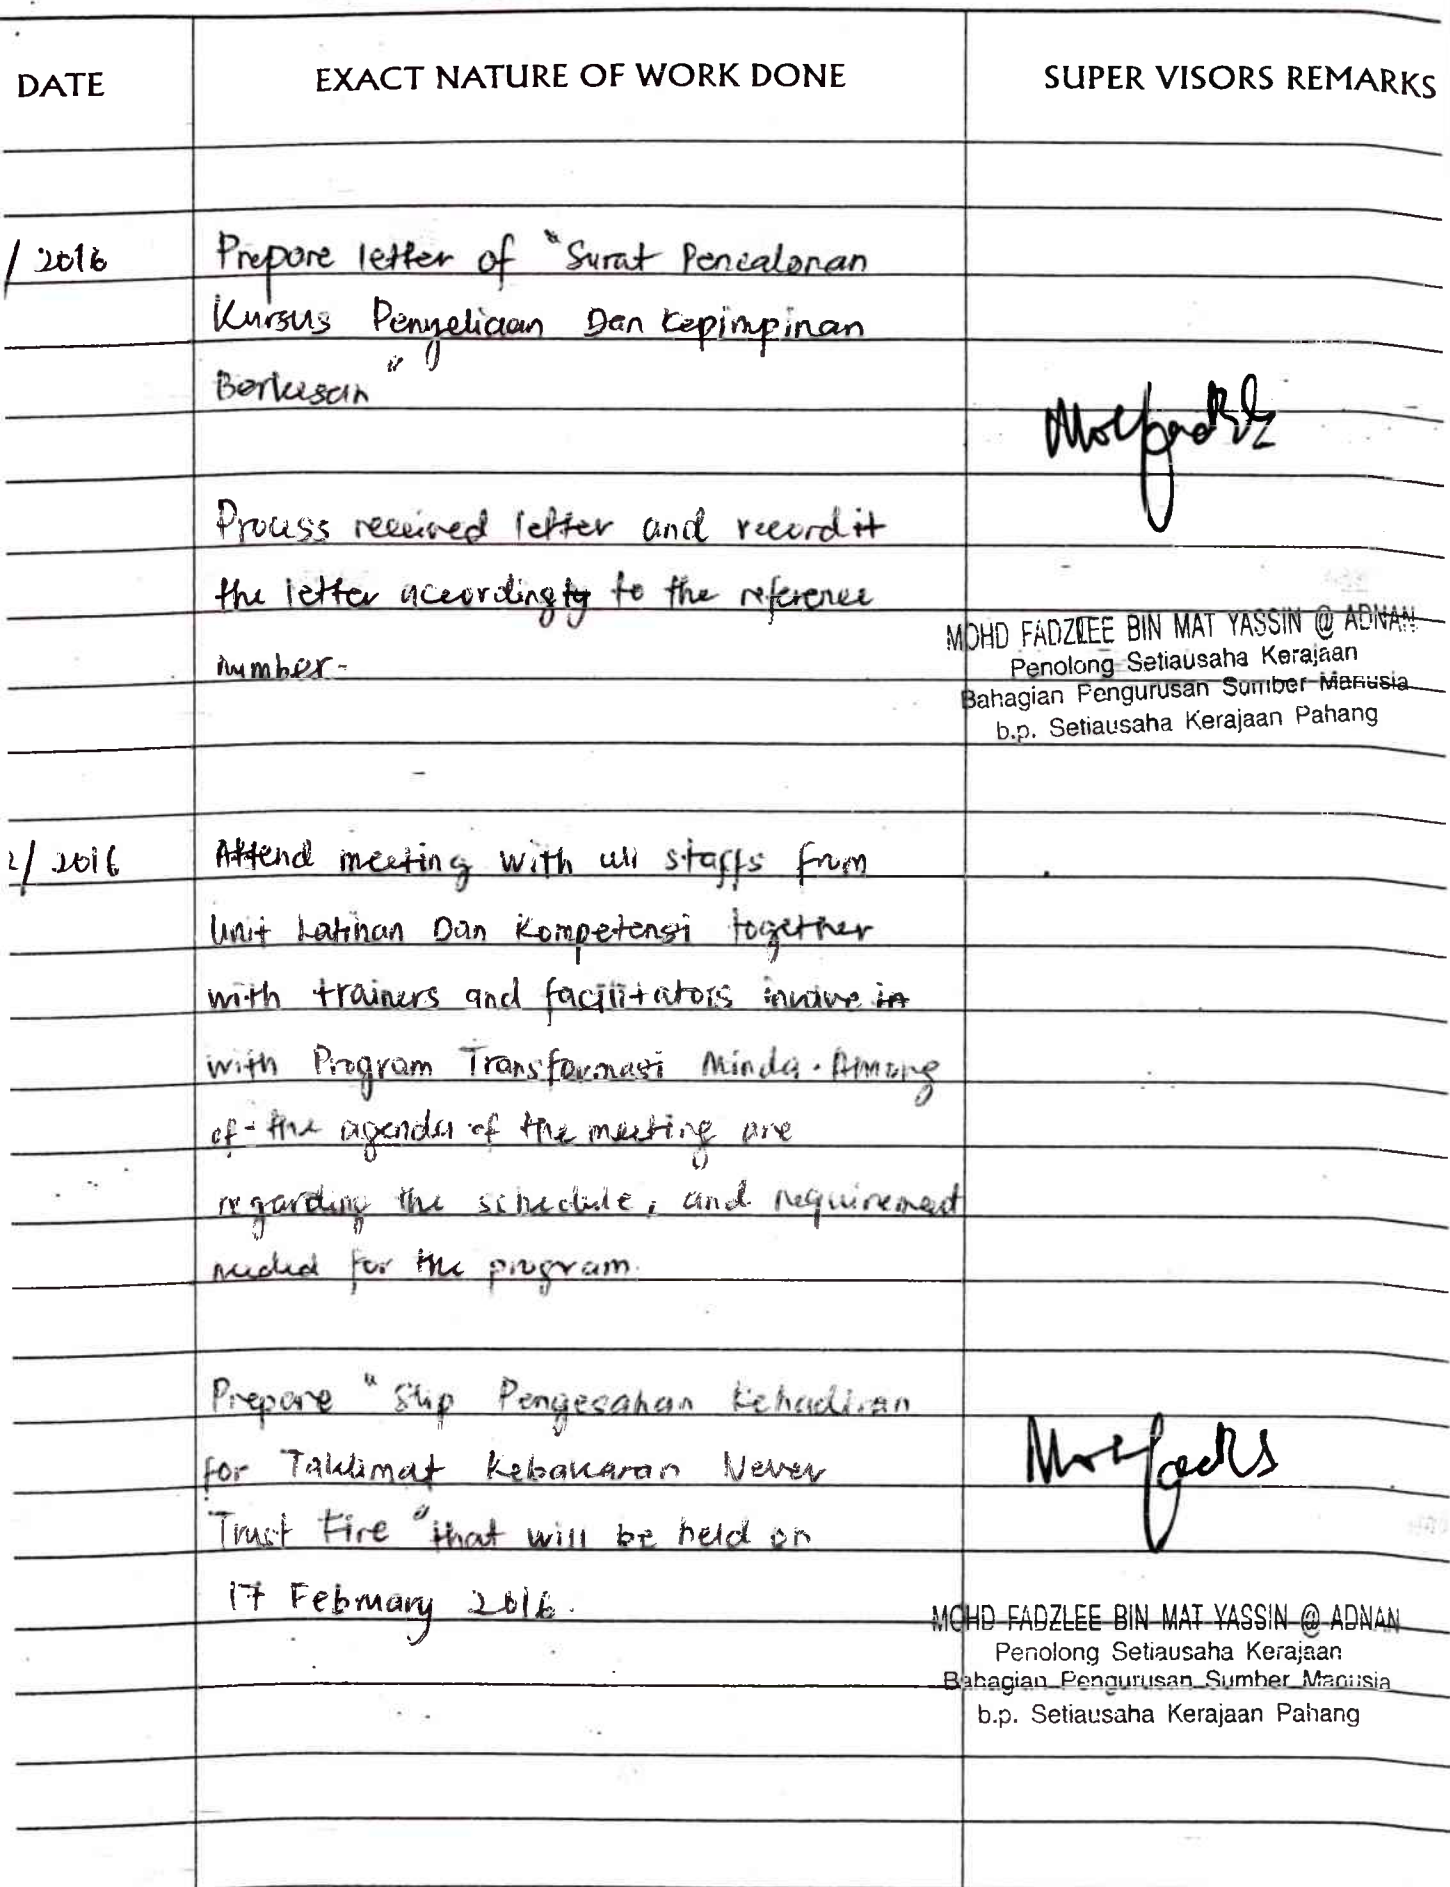 DATE EXACT NATURE OF WORK DONE SUPER VISORS REMARKS
/ 2016 Prepare letter of "Surat Pencalonan
Kursus Penyeliaan Dan Kepimpinan
Berkesan"
Process received letter and record it
the letter accordingly to the reference
number.
MOHD FADZLEE BIN MAT YASSIN @ ADNAN
Penolong Setiausaha Kerajaan
Bahagian Pengurusan Sumber Manusia
b.p. Setiausaha Kerajaan Pahang
2/ 2016 Attend meeting with all staffs from
Unit Latihan Dan Kompetensi together
with trainers and facilitators invlve in
with Program Transformasi Minda. Among
of the agenda of the meeting are
regarding the schedule, and requirement
needed for the program.
Prepare "Slip Pengesahan Kehadiran
for Taklimat Kebakaran Never
Trust Fire" that will be held on
17 February 2016.
MOHD FADZLEE BIN MAT YASSIN @ ADNAN
Penolong Setiausaha Kerajaan
Bahagian Pengurusan Sumber Manusia
b.p. Setiausaha Kerajaan Pahang